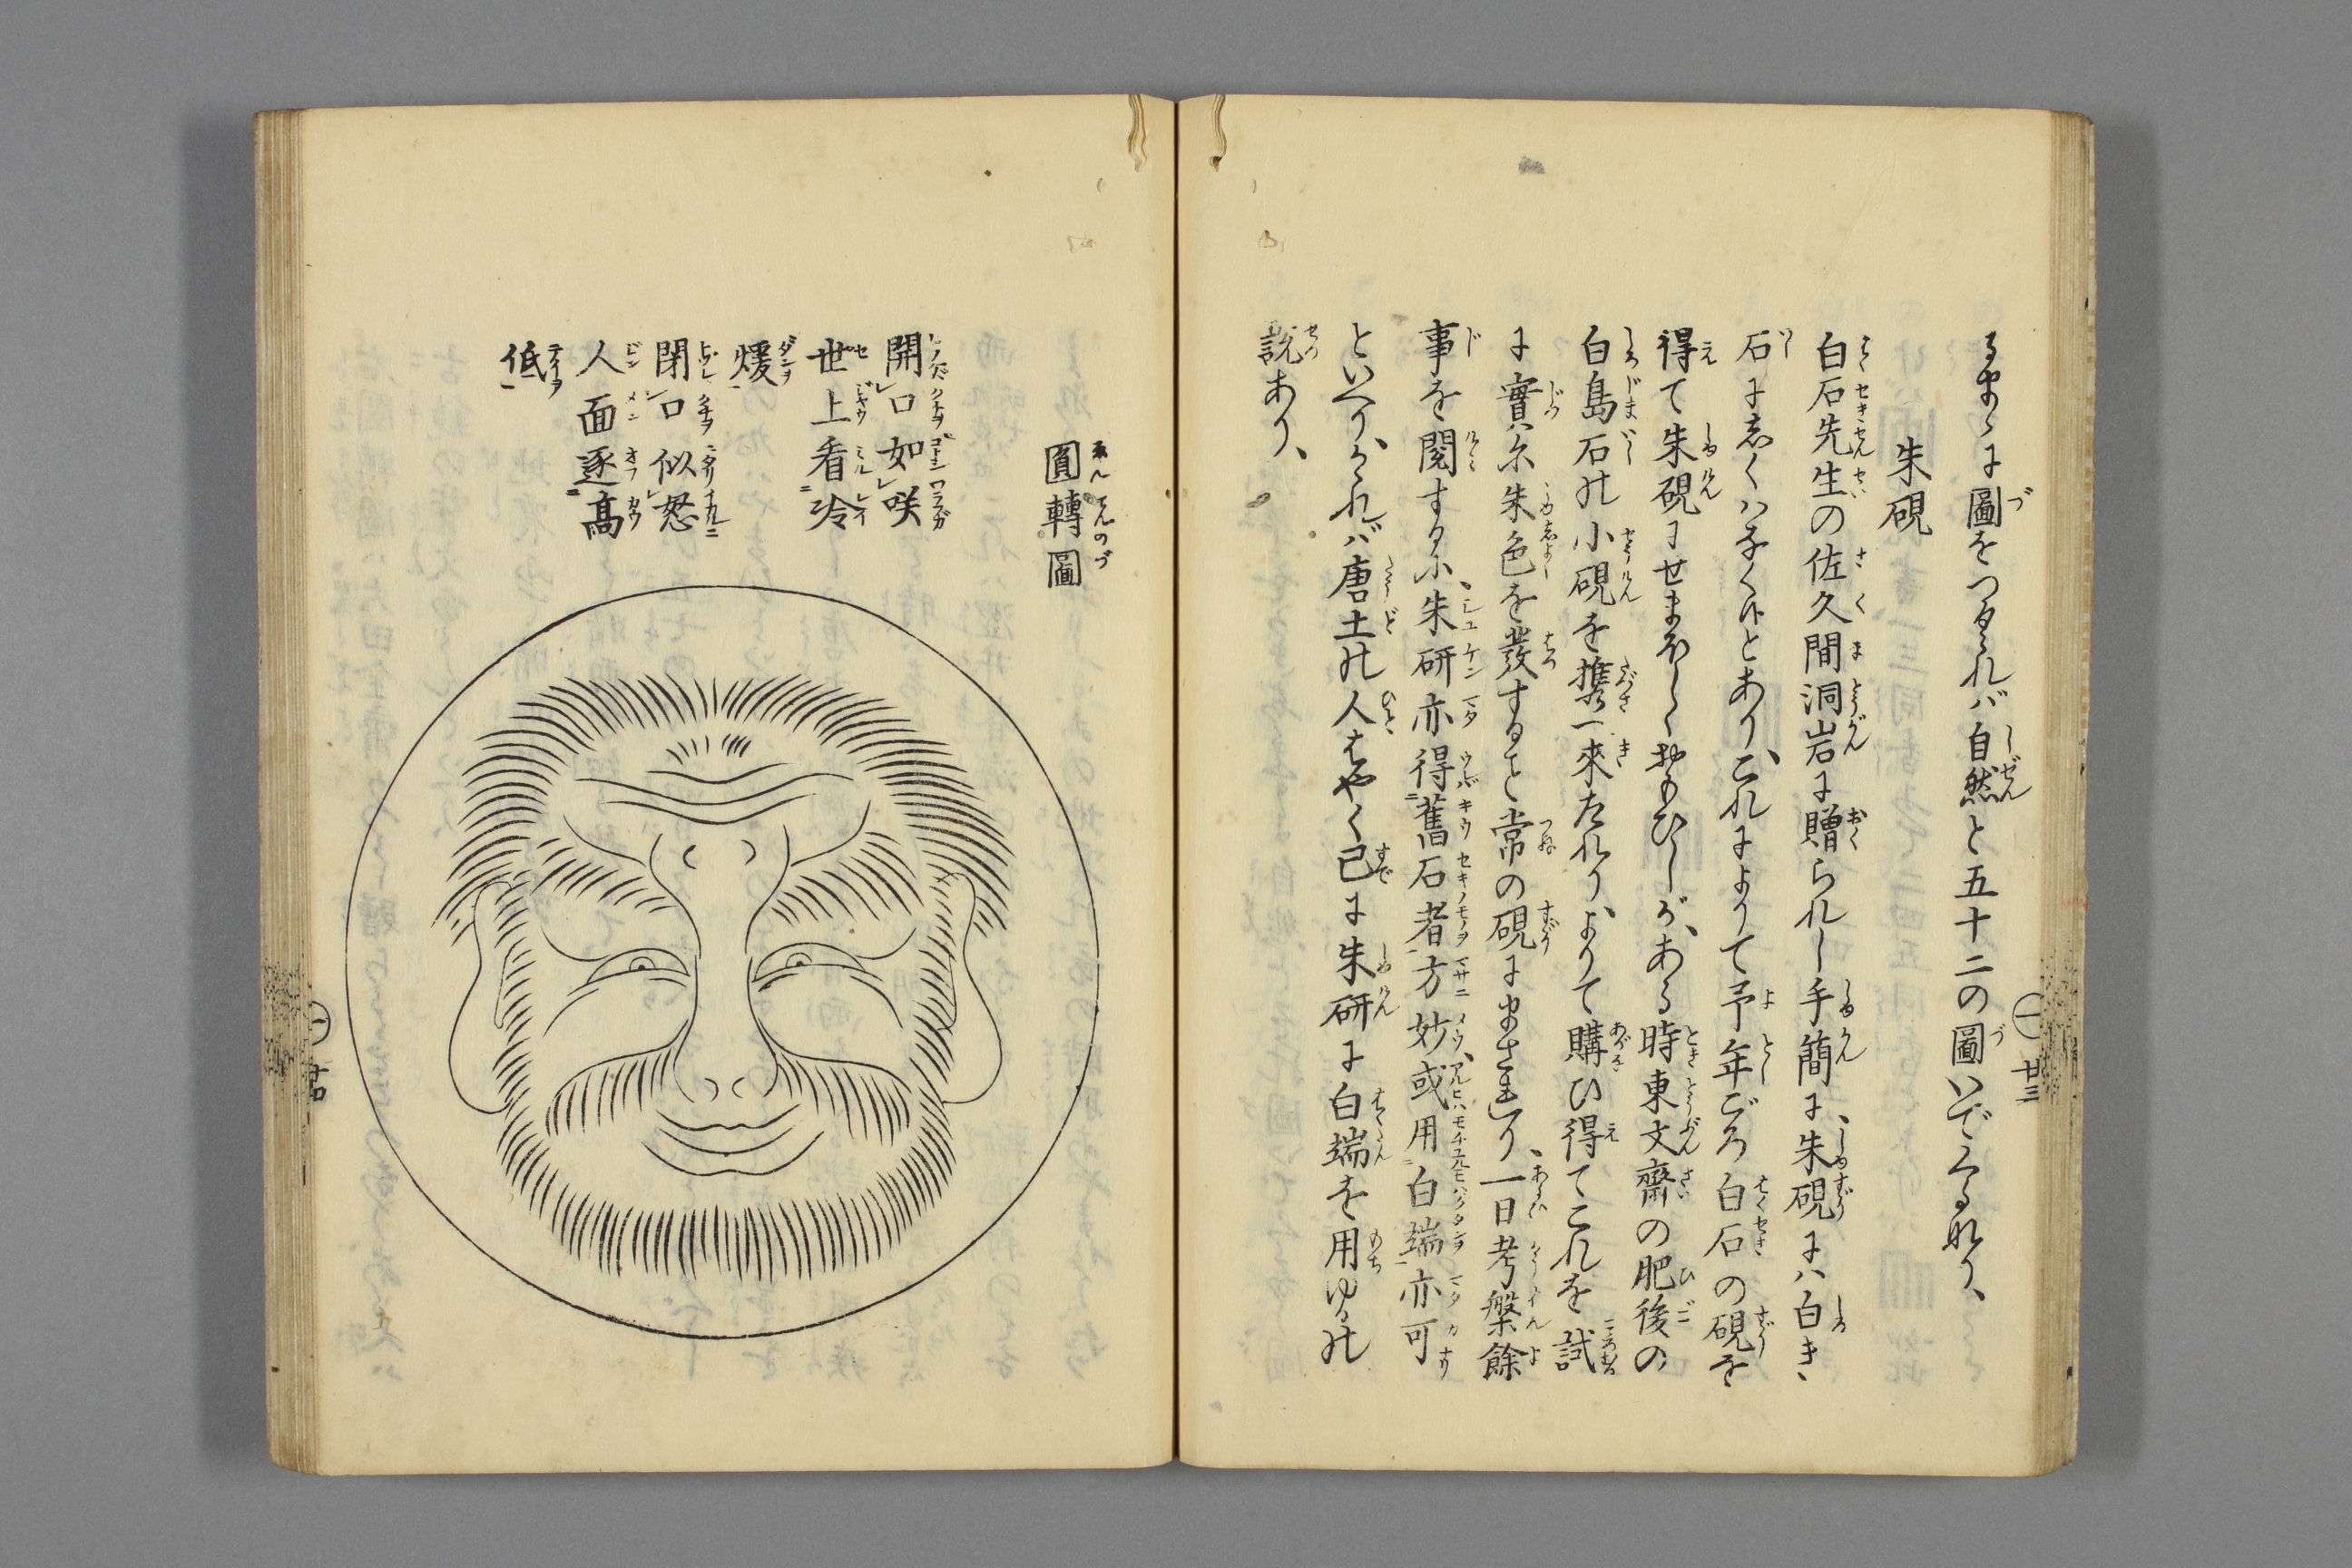 るまゝに圖をつくれバ自然と五十二の圖いできるなり、
朱硯
白石先生の佐久間洞岩に贈られし手簡に、朱硯にハ白き
石にしくハなく候とあり、これによりて予年ごろ白石の硯を
得て朱硯にせまほしくおもひしが、ある時東文齋の肥後の
白島石の小硯を携へ來たれり、よりて購ひ得てこれを試
に實に朱色を發すること常の硯にまされり、一日考槃餘
事を閲するに、朱研亦得舊石者方妙、或用白端亦可
といへり、かれバ唐土の人はやく已に朱研に白端を用ゆるの
説あり、
一 廿三
圓轉圖
開口如咲
世上看冷
煖
閉口似怒
人面逐高
低